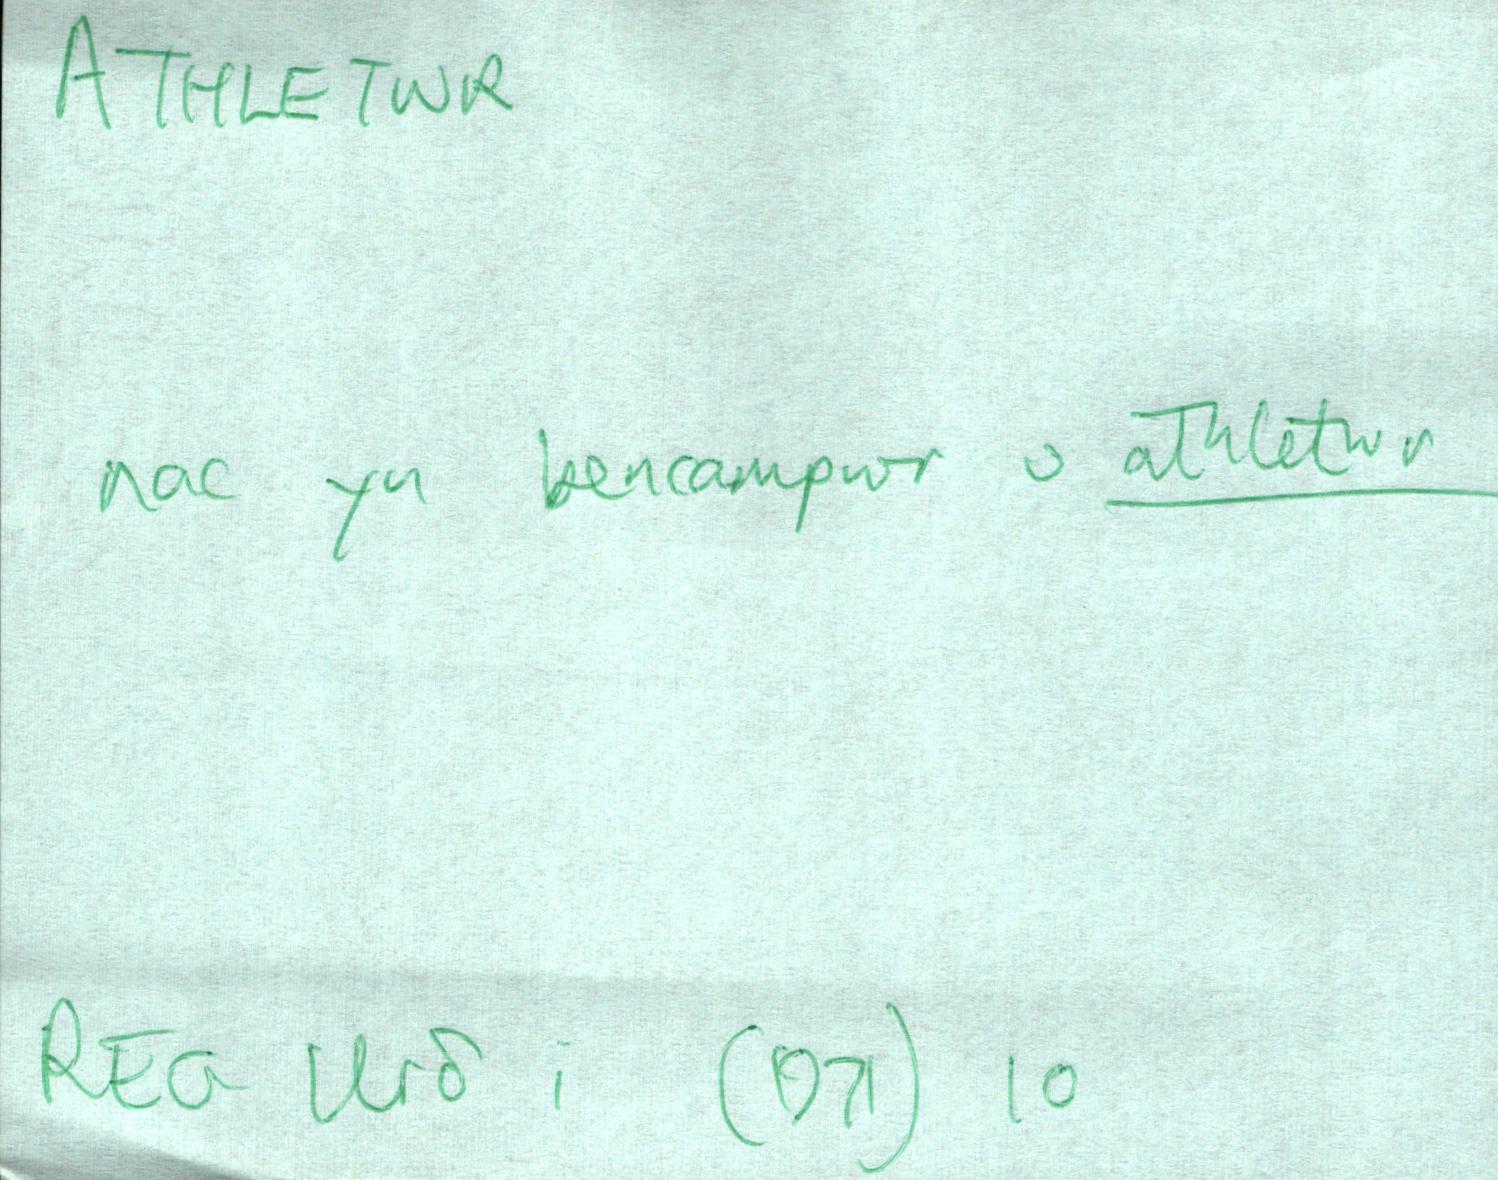 ATHLETWR
nac yn bencampwr o athletwr
REG Urdd i (1971) 10